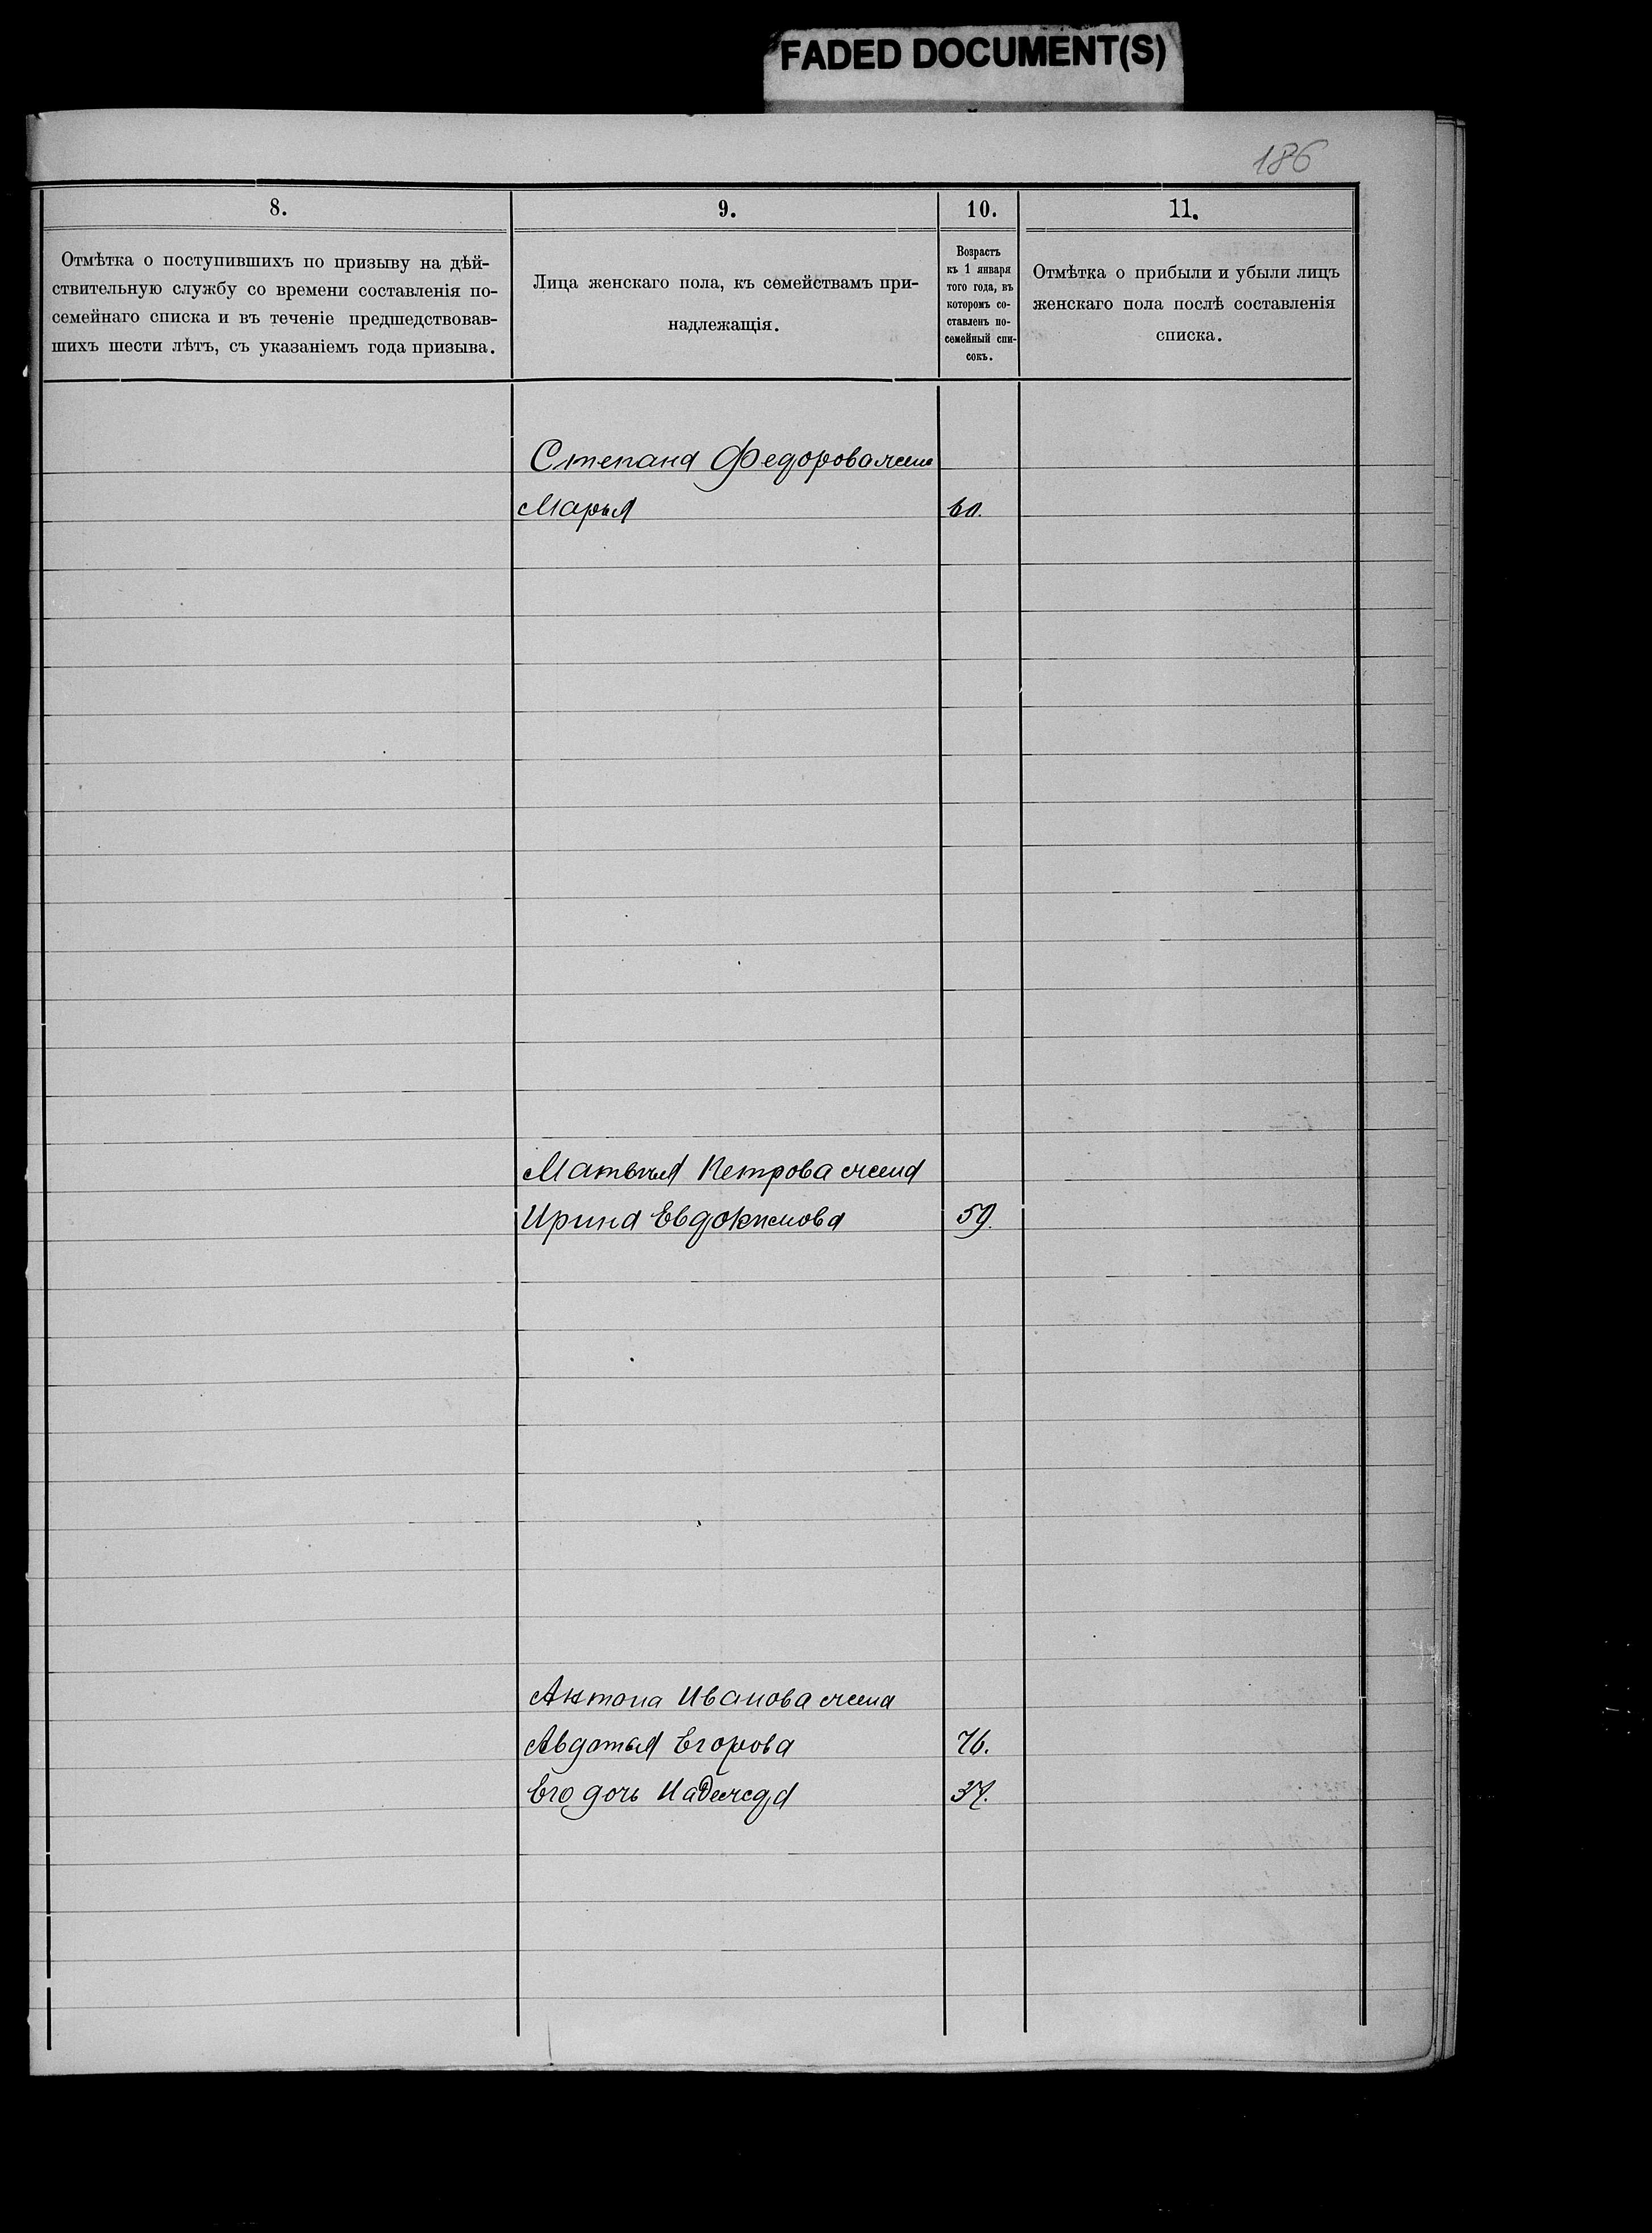 FADED DOCUMENT(S)
186
8.
9.
10.
11.
Отмѣтка о поступившихъ по призыву на дѣй-
ствительную службу со времени составленія по-
семейнаго списка и въ теченіе предшедствовав-
шихъ шести лѣтъ, съ указаніемъ года призыва.
Лица женскаго пола, къ семействамъ при-
надлежащія.
Возрастъ
къ 1 января
того года, въ
которомъ со-
ставленъ по-
семейный спи-
сокъ.
Отмѣтка о прибыли и убыли лицъ
женскаго пола послѣ составленія
списка.
Степана Федорова жена
Марья 60.
Матвѣя Петрова жена
Ирина Евдокимова 59.
Антона Иванова жена
Авдотья Егорова 76.
Его дочь Надежда 37.